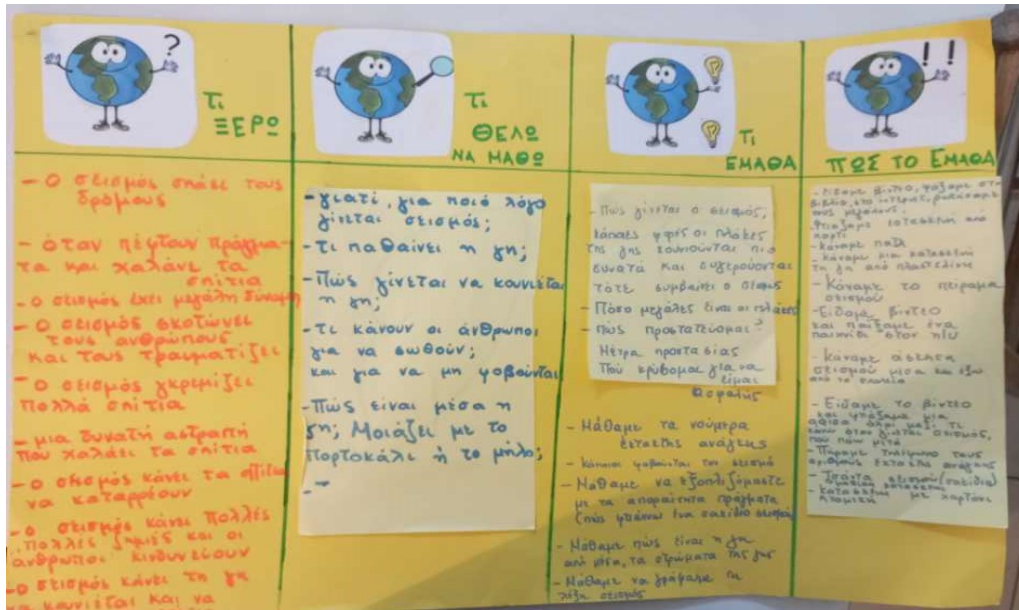 ?
Τι
ΞΕΡΩ
- Ο σεισμός σπάει τους
δρόμους
- όταν πέφτουν πράγμα-
τα και χαλάνε τα
σπίτια
- ο σεισμός έχει μεγάλη δύναμη
- Ο σεισμός σκοτώνει
τους ανθρώπους
και τους τραυματίζει
- Ο σεισμός γκρεμίζει
πολλά σπίτια
- μια δυνατή αστραπή
που χαλάει τα σπίτια
- ο σεισμός κάνει τα σπίτια
να καταρρέουν
- ο σεισμός κάνει πολλές
πολλές ζημιές και οι
άνθρωποι κινδυνεύουν
- ο σεισμός κάνει τη γη
να κουνιέται και να
Τι
ΘΕΛΩ
ΝΑ ΜΑΘΩ
- γιατί, για ποιό λόγο
γίνεται σεισμός;
- τι παθαίνει η γη;
- Πώς γίνεται να κουνιέται
η γη;
- τι κάνουν οι άνθρωποι
για να σωθούν;
και για να μη φοβούνται
- Πώς είναι μέσα η
γη; Μοιάζει με το
πορτοκάλι ή το μήλο;
Τι
ΕΜΑΘΑ
- Πώς γίνεται ο σεισμός,
κάποιες φορές οι πλάκες
της γης κουνιούνται πιο
δυνατά και συγκρούονται
τότε συμβαίνει ο σεισμός
- Πόσο μεγάλες είναι οι πλάκες
- Πώς προστατεύομαι?
Μέτρα προστασίας
Πού κρύβομαι για να
είμαι
ασφαλής
- Μάθαμε τα νούμερα
έκτακτης ανάγκης
- κάποιοι φοβούνται τον σεισμό
- Μάθαμε να εξοπλιζόμαστε
με τα απαραίτητα πράγματα
(πώς φτιάχνω ένα σακίδιο σεισμού)
- Μάθαμε πώς είναι η γη
από μέσα, τα στρώματα της γης
- Μάθαμε να γράφουμε τη
λέξη σεισμός
!!
ΠΩΣ ΤΟ ΕΜΑΘΑ
- Είδαμε βίντεο, ψάξαμε στα
βιβλία, στο ίντερνετ, ρωτήσαμε
τους μεγάλους.
Φτιάξαμε κατασκευή από
χαρτί
- κάναμε παζλ
- κάναμε μια κατασκευή
τη γη από πλαστελίνη
- Κάναμε το πείραμα
σεισμού
- Είδαμε βίντεο
και παίξαμε ένα
παιχνίδι στον η/υ
- Κάναμε άσκηση
σεισμού μέσα και έξω
από το σχολείο
- Είδαμε το βίντεο
και φτιάξαμε μια
αφίσα όλοι μαζί τι
κάνω όταν γίνεται σεισμός,
που πάω μετά
- Πήραμε τηλέφωνο τους
αριθμούς έκτακτης ανάγκης
- Τσάντα σεισμού (σακίδιο)
- Κατασκευή με χαρτόνι